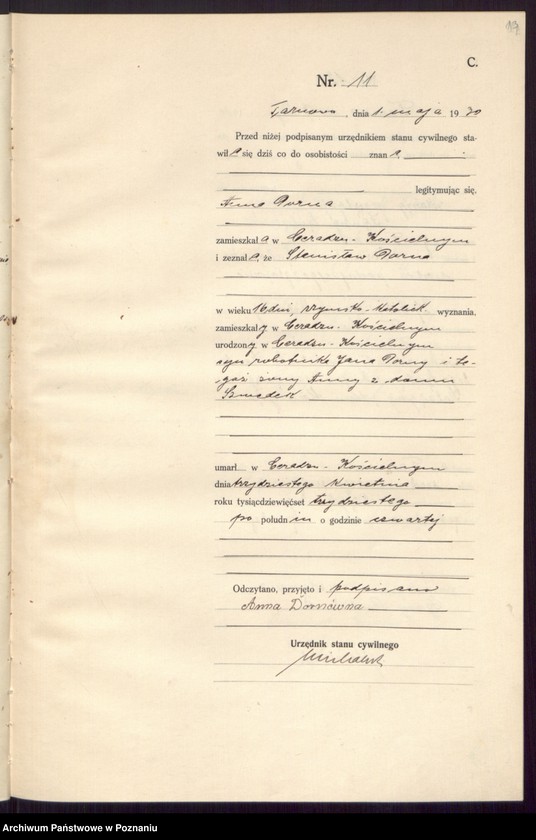 C.
Nr. 11
Tarnowo, dnia 1. maja 1930
Przed niżej podpisanym urzędnikiem stanu cywilnego sta-
wiła się dziś co do osobistości znana
legitymując się.
Anna Dorna
zamieszkała w Ceradzu-Kościelnym
i zeznała, że Stanisław Dorna
w wieku 16 dni, rzymsko-katolick. wyznania,
zamieszkały w Ceradzu-Kościelnym
urodzony w Ceradzu-Kościelnym
syn robotnika Jana Dorny i te-
goż żony Anny z domu
umarł w Ceradzu-Kościelnym
dnia trzydziestego kwietnia
roku tysiącdziewięćset trzydziestego
po południu o godzinie czwartej
Odczytano, przyjęto i podpisano
Anna Dornówna
Urzędnik stanu cywilnego
Archiwum Państwowe w Poznaniu